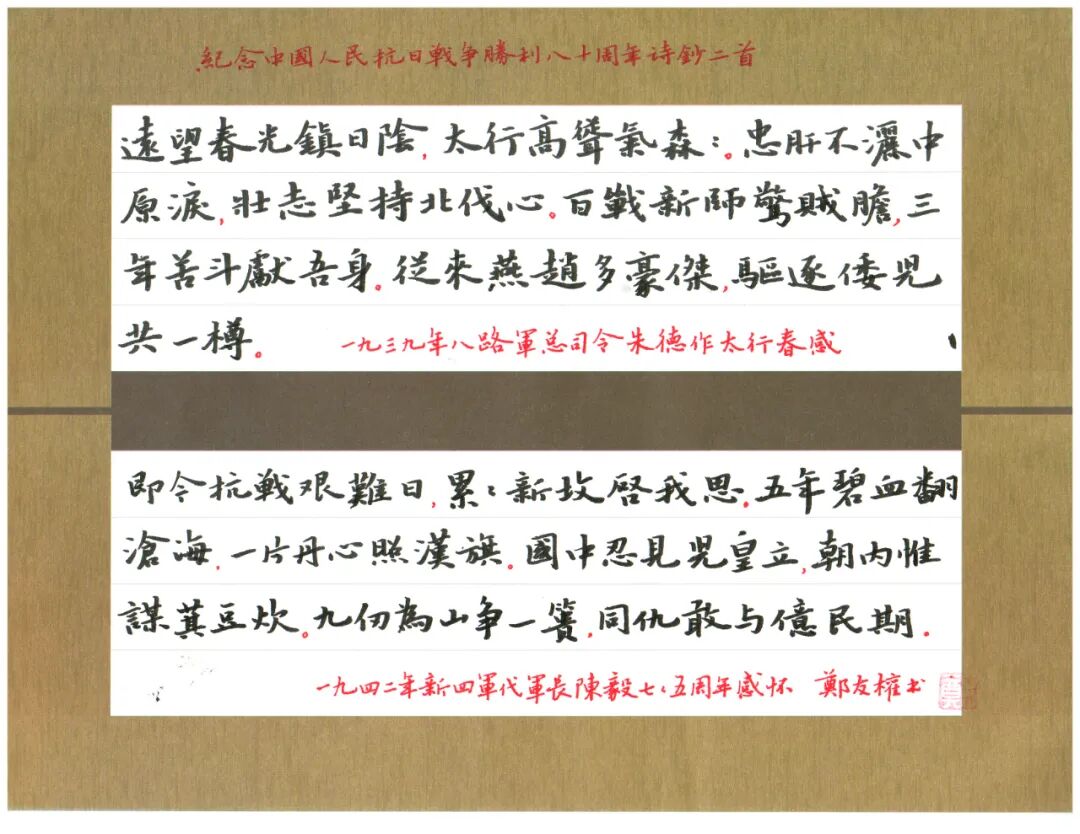 紀念中國人民抗日戰争勝利八十周年詩鈔二首
遠望春光鎮日陰，太行高聳氣森:。忠肝不灑中
原淚，壯志堅持北伐心。百戰新師驚賊膽，三
年苦斗獻吾身。從來燕趙多豪傑，驅逐倭兒
共一樽。 一九三九年八路軍总司令朱德作太行春感
即令抗戰艱難日，累:新坟啓我思。五年碧血翻
滄海，一片丹心照漢旗。國中忍見兒皇立，朝内惟
謀萁豆炊。九仞為山争一簣，同仇敢与億民期。
一九四二年新四軍代軍長陳毅七:五周年感怀 鄭友榷书